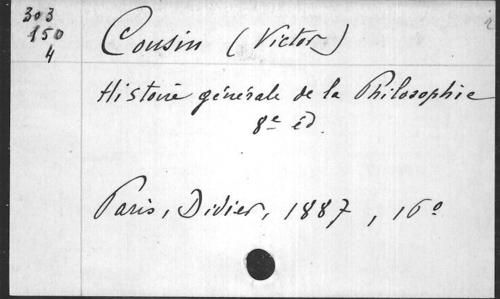 303
150
4
Cousin (Victor)
Histoire générale de la Philosophie
8e éd.
Paris, Didier, 1887, 16o